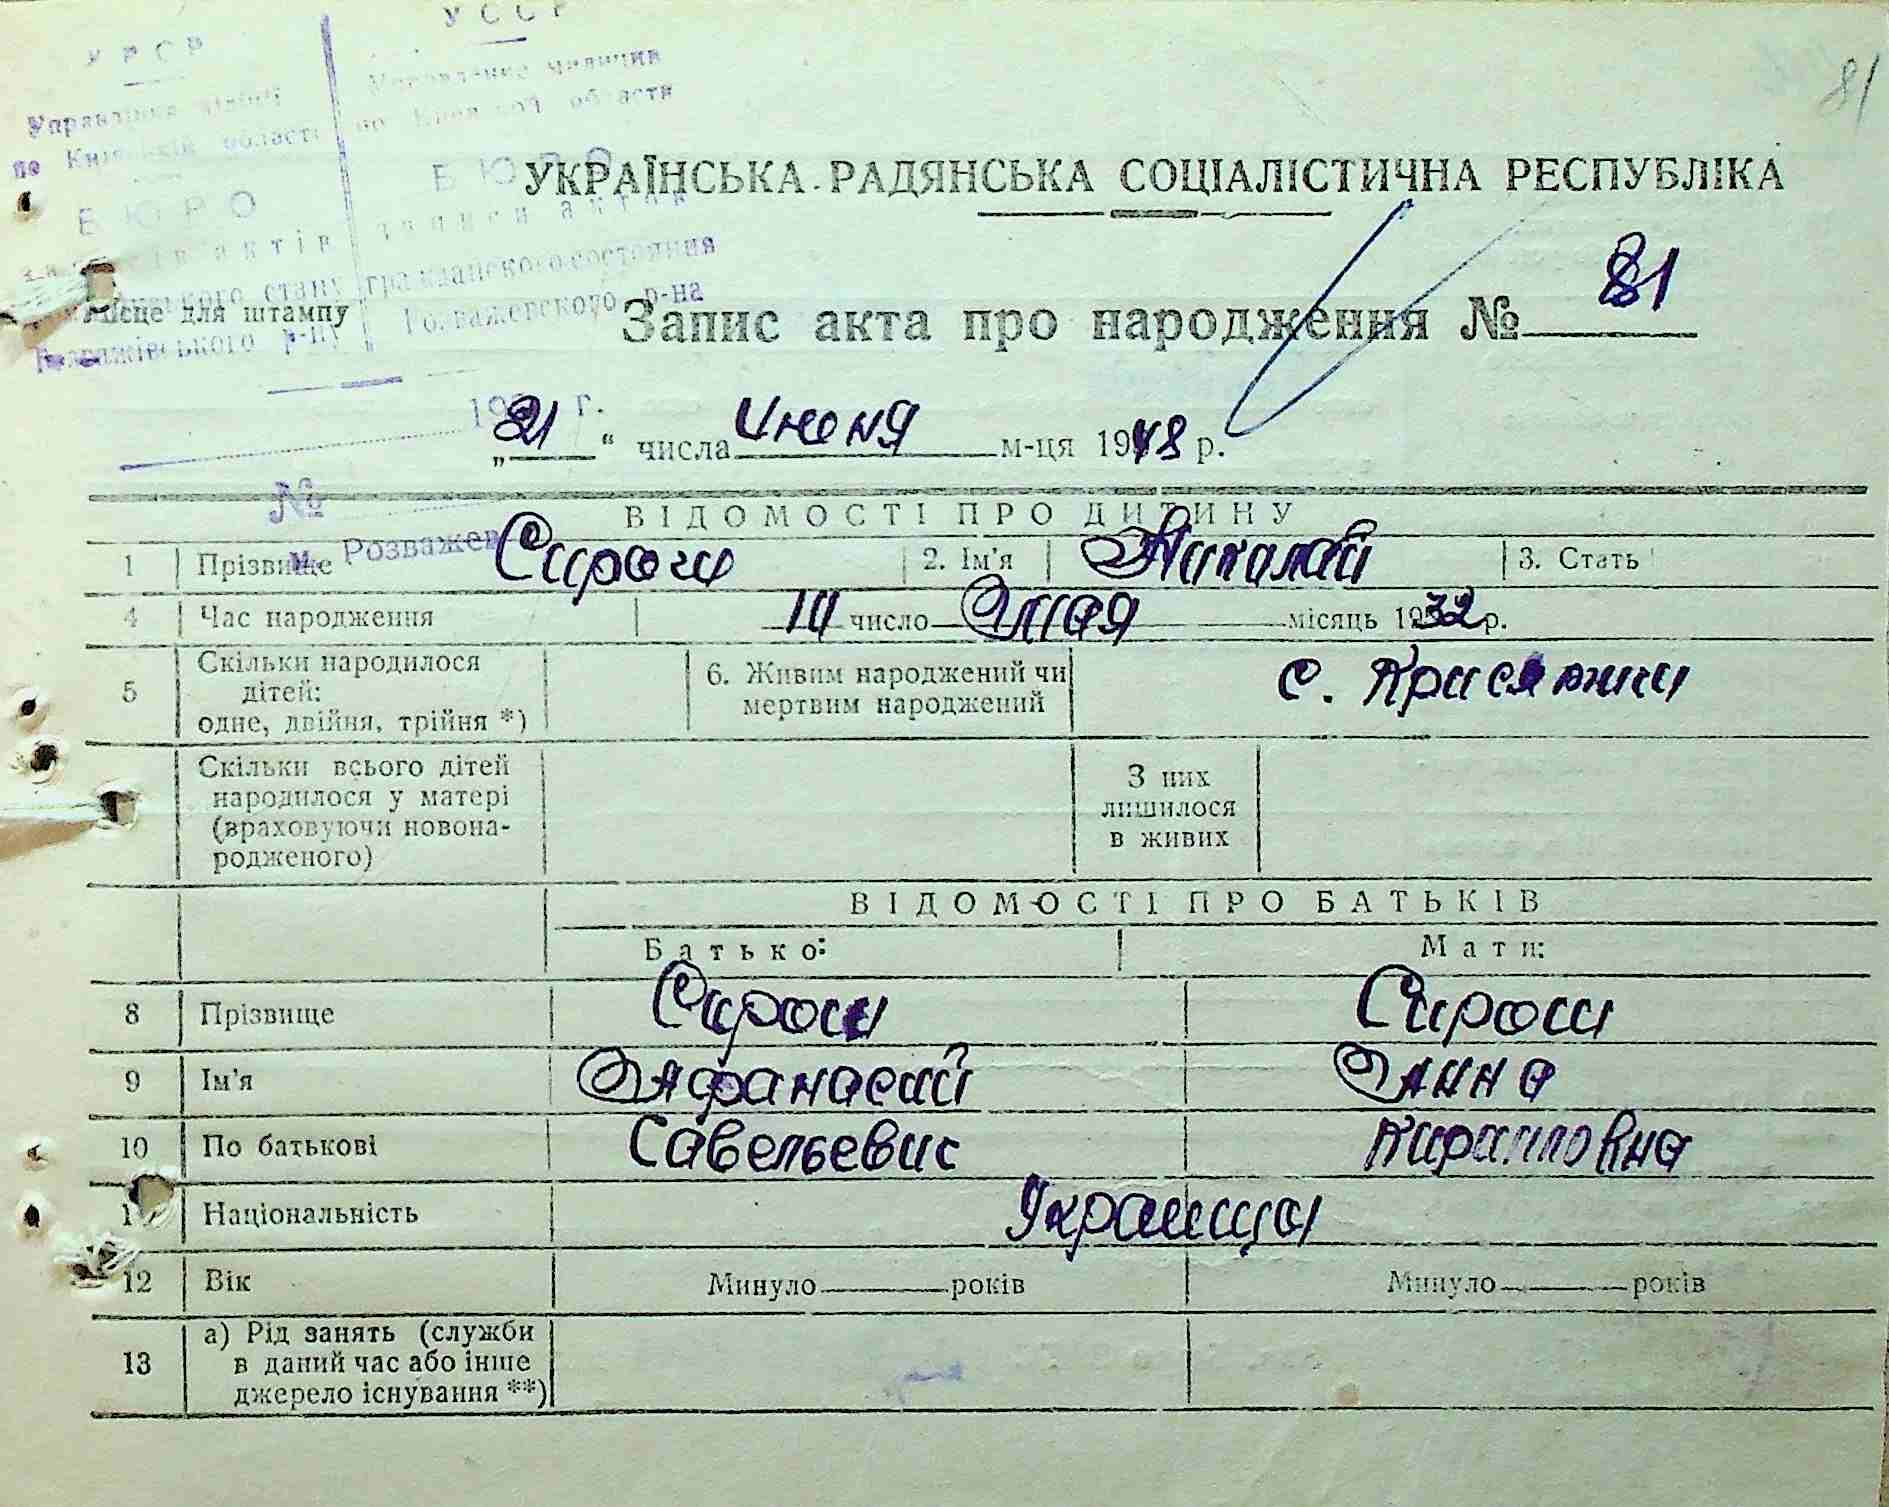 У Р С Р
У С С Р
Управління міліції
по Київській області
Управление милиции
по Киевской области
Б Ю Р О
Б Ю Р О
записи актов
гражданского состояния
Розважевского р-на
Місце для штампу
Розважівського р-ну
81
УКРАЇНСЬКА РАДЯНСЬКА СОЦІАЛІСТИЧНА РЕСПУБЛІКА
Запис акта про народження № 81
„21“ числа Июня м-ця 1948 р.
№
м. Розважев
ВІДОМОСТІ ПРО ДИТИНУ
1 Прізвище Сирош 2. Ім'я Николай 3. Стать
4 Час народження число Мая місяць 1932 р.
5 Скільки народилося дітей: одне, двійня, трійня *) 6. Живим народжений чи мертвим народжений с.
Скільки всього дітей народилося у матері (враховуючи новонародженого) З них лишилося в живих
ВІДОМОСТІ ПРО БАТЬКІВ
Батько: Мати:
8 Прізвище Сирош Сирош
9 Ім'я Афанасий Анна
10 По батькові Савельевич Кириловна
Національність Украинцы
12 Вік Минуло років Минуло років
13 а) Рід занять (служби в даний час або інше джерело існування **)